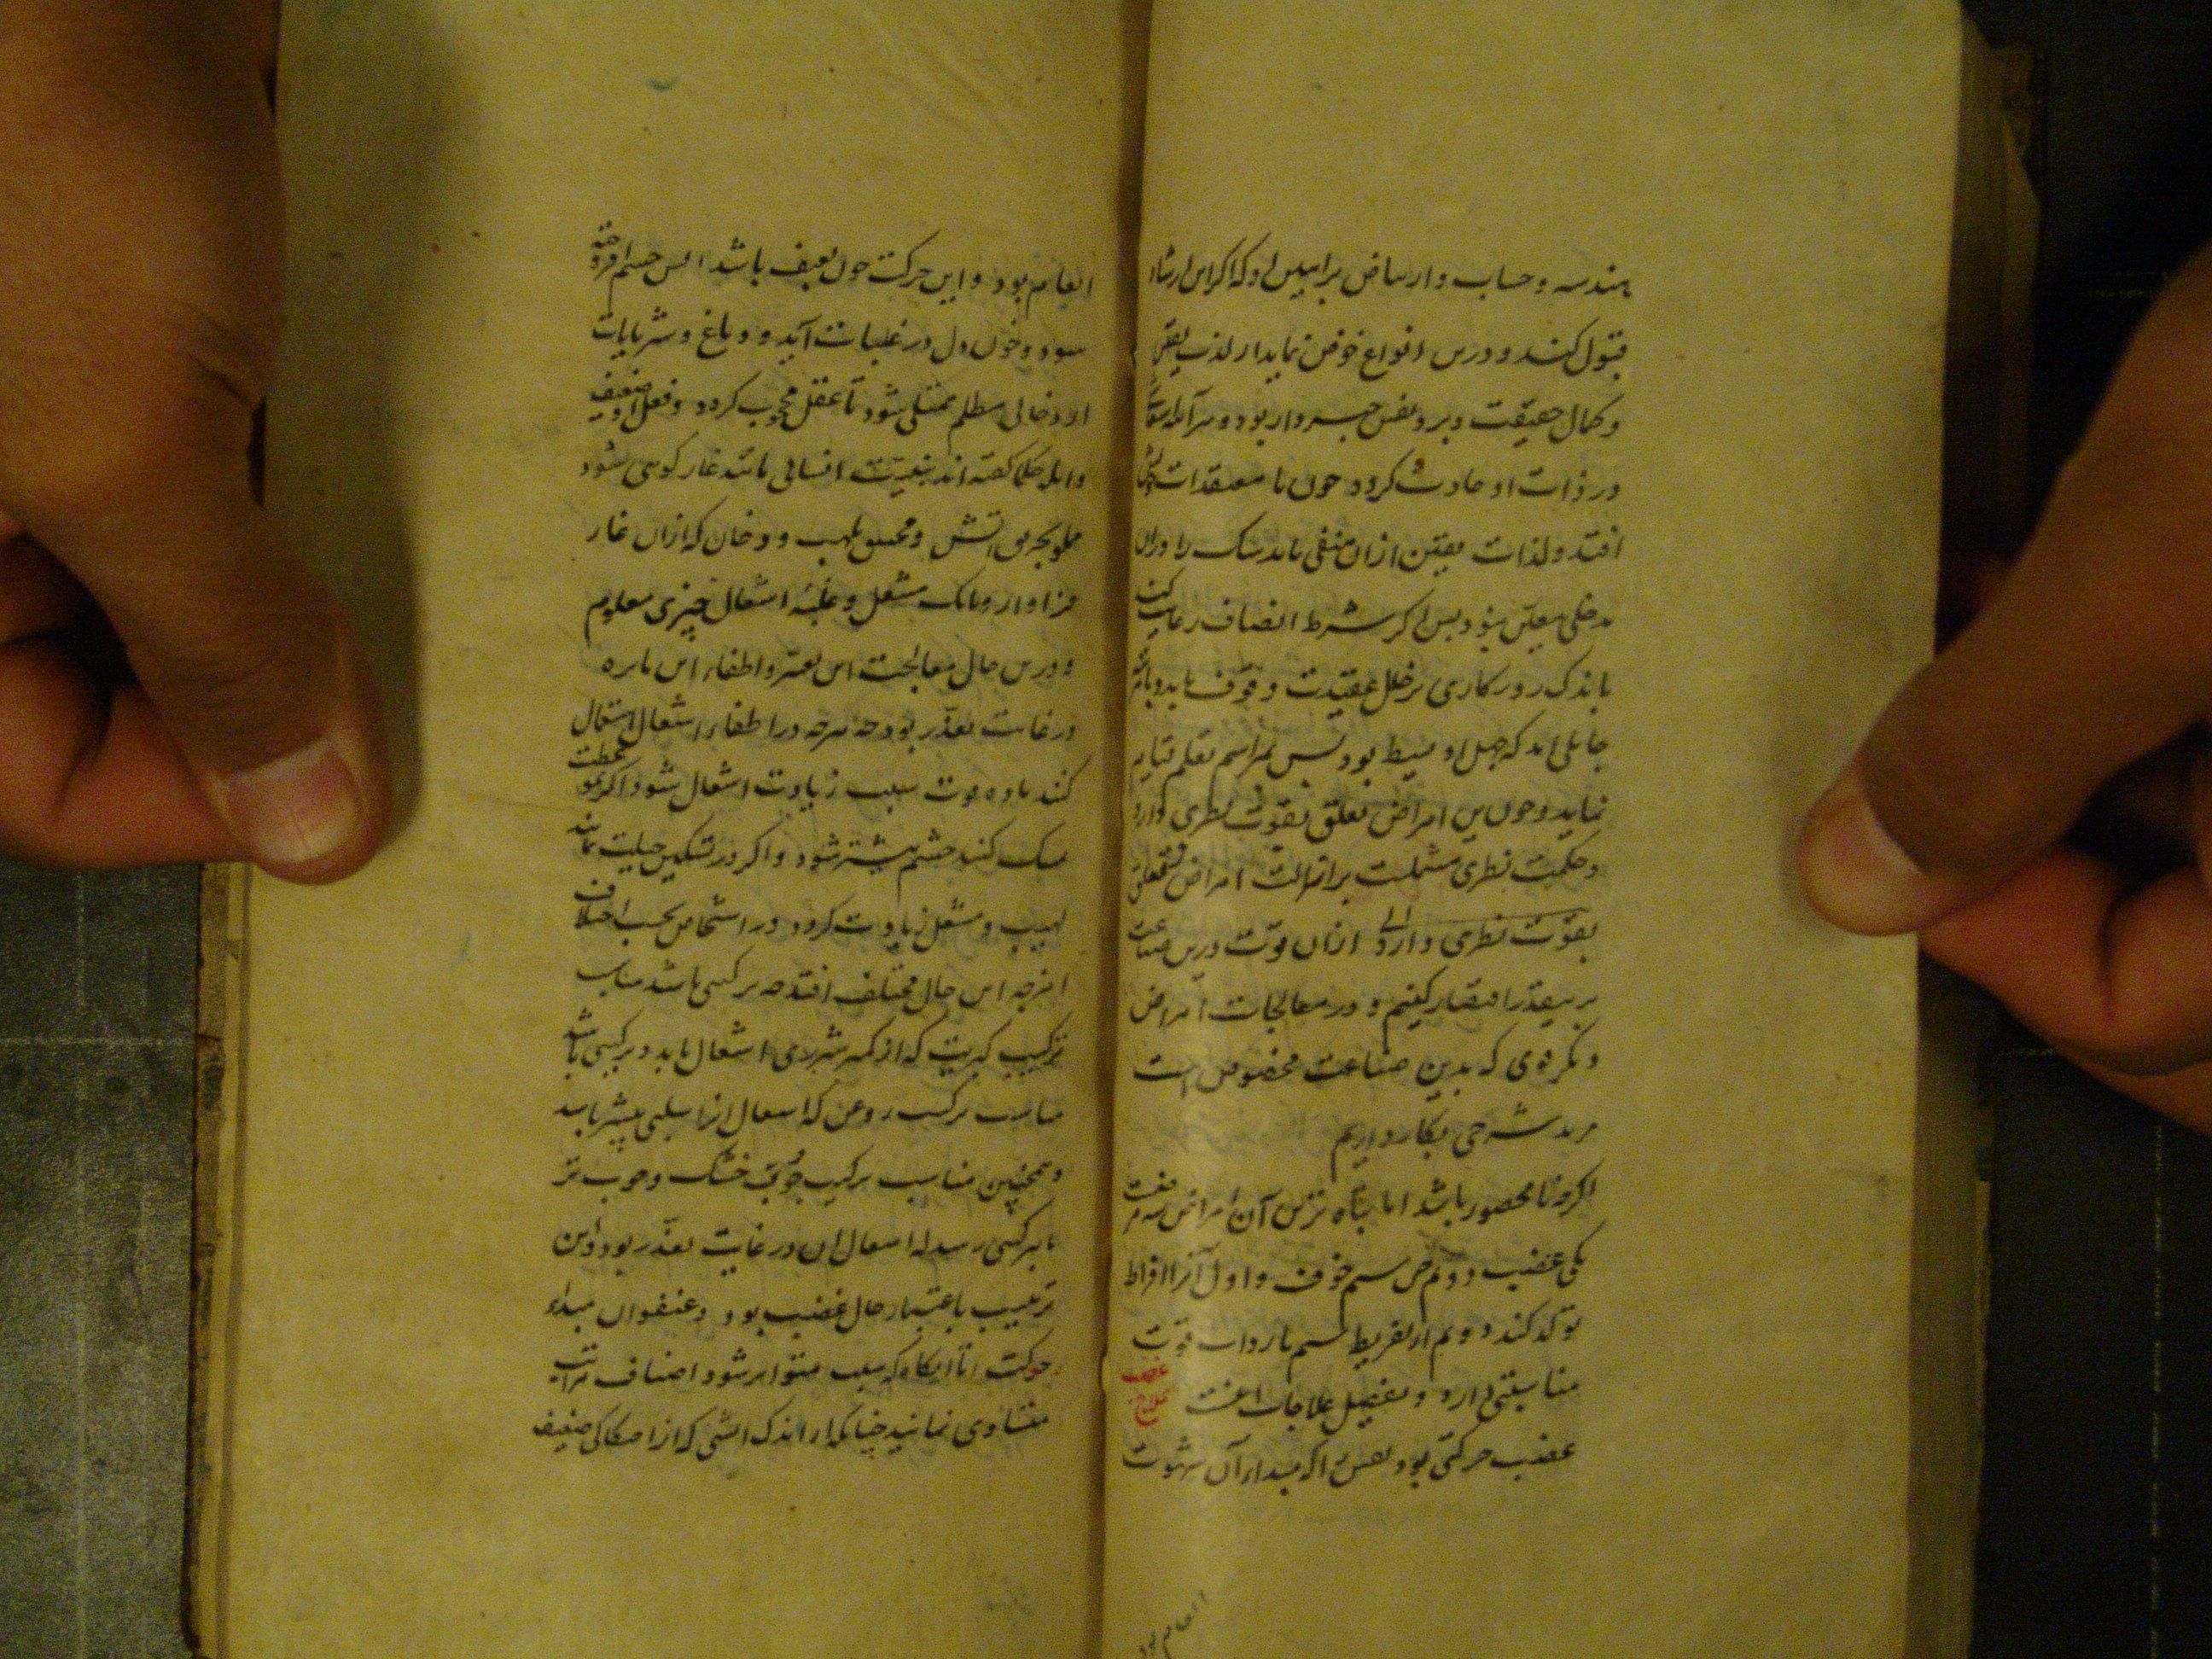 هندسه و حساب و ارتیاض براهین او که اگر این ارشاد
قبول کند و درین انواع خوض نماید از لذت یقین
و کمال حقیقت و برد نفس خبردار بود و هر آینه
در ذات او حادث کردد چون با معتقدات خویش
افتد و لذات یقین ازان منفی یابد شک را دران
مدخلی معین شود پس اکر شرط انصاف رعایت کند
باندک روزکاری بر خلل عقیدت وقوف یابد و باشد
جاهلی اید که جهل او بسیط بود پس بمراسم تعلم قیام
نماید و چون این امراض تعلق بقوت نظری دارد
و حکمت نظری مشتملست بر ازالت امراض که متعلق
بقوت نظری دارد ازان قوت درین صناعت
برینقدر اقتصار کنیم و در معالجات امراض
دیکر قوی که بدین صناعت مخصوص است
مزید شرحی بکار داریم
اکرچه نا محصور باشد اما تباه ترین آن امراض سه مرض است
یکی غضب دوم سیم خوف و اول آنرا افراط
تولد کند دوم از تفریط سیم با رداءت قوت
مناسبتی دارد و تفصیل علاجات اینست علاج غضب
غضب حرکتی بود نفس را که مبداء آن شهوت
انتقام بود
انتقام بود و این حرکت چون بعنف باشد آتش خشم افروخته
شود و خون دل در غلیان آید و دماغ و شریانات
از دخانی مظلم ممتلی شود تا عقل محجوب کردد و فعل او ضعیف
و اهل حکما کفته اند بنیت انسانی مانند غار کوهی شود
مملو بحریق آتش و محتقن بلهب و دخان که ازان غار
جز آواز و بانک مشعل و غلبه اشتعال چیزی معلوم
و درین حال معالجت این تغیر و اطفاء این نایره
در غایت تعذر بود چه هرچه در اطفاء اشتعال استعمال
کند ماده قوت سبب زیادت اشتعال شود اکر بموعظت
تمسک کند خشم بیشتر شود و اکر در تسکین حیلت نماید
لهیب و مشعل زیادت کردد و در اشخاص بحسب اختلاف
امزجه این حال مختلف افتد چه ترکیبی باشد مناسب
ترکیب کبریت که از کمتر شرری اشتعال یابد و ترکیبی باشد
مناسب ترکیب روغن که اشتعال انرا سببی بیشتر باید
و همچنین مناسب ترکیب چوب خشک و چوب تر
تا بترکیبی رسد که اشتعال ان در غایت تعذر بود و این
ترتیب باعتبار حال غضب بود و عنفوان مبداء
حرکت اما آنکاه که سبب متواتر شود اصناف مراتب
متساوی نمایند چنانکه از اندک آتشی که از احتکاکی ضعیف